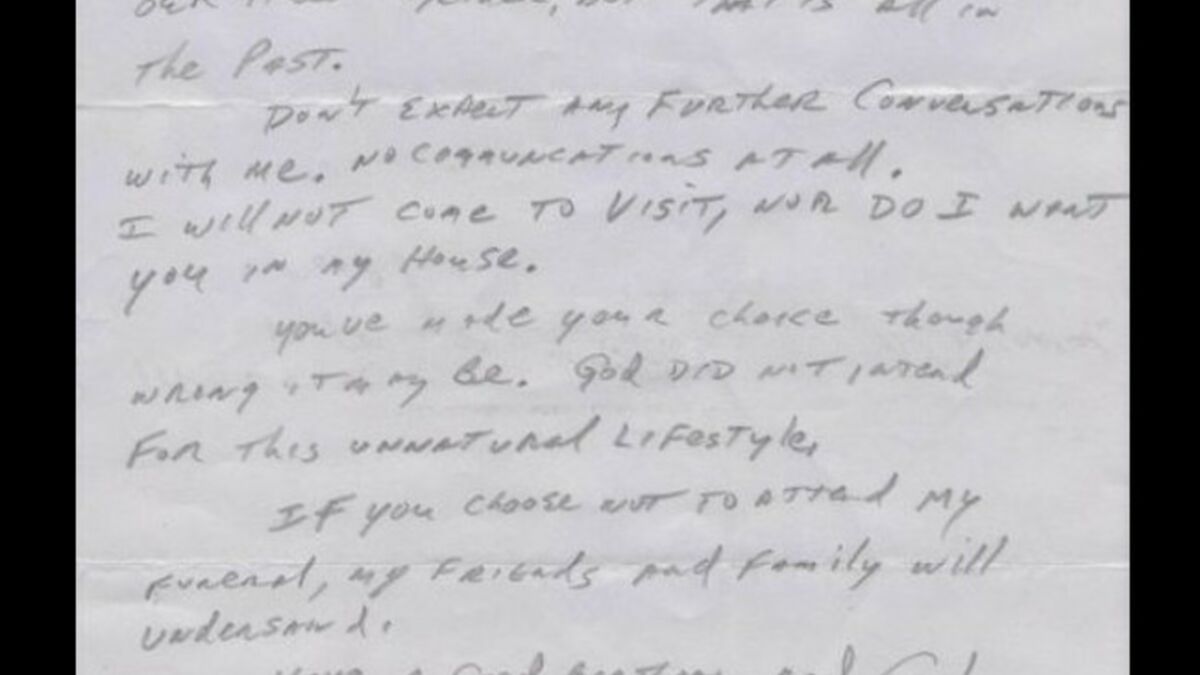 that is all in
the Past.
Don't expect any further Conversations
with me. No communcations at all.
I will not come to visit, nor do I want
you in my House.
you've made your choice though
wrong it may be. God DID not intend
for this unnatural Lifestyle.
If you choose not to attend my
funeral, my friends and family will
undersand.